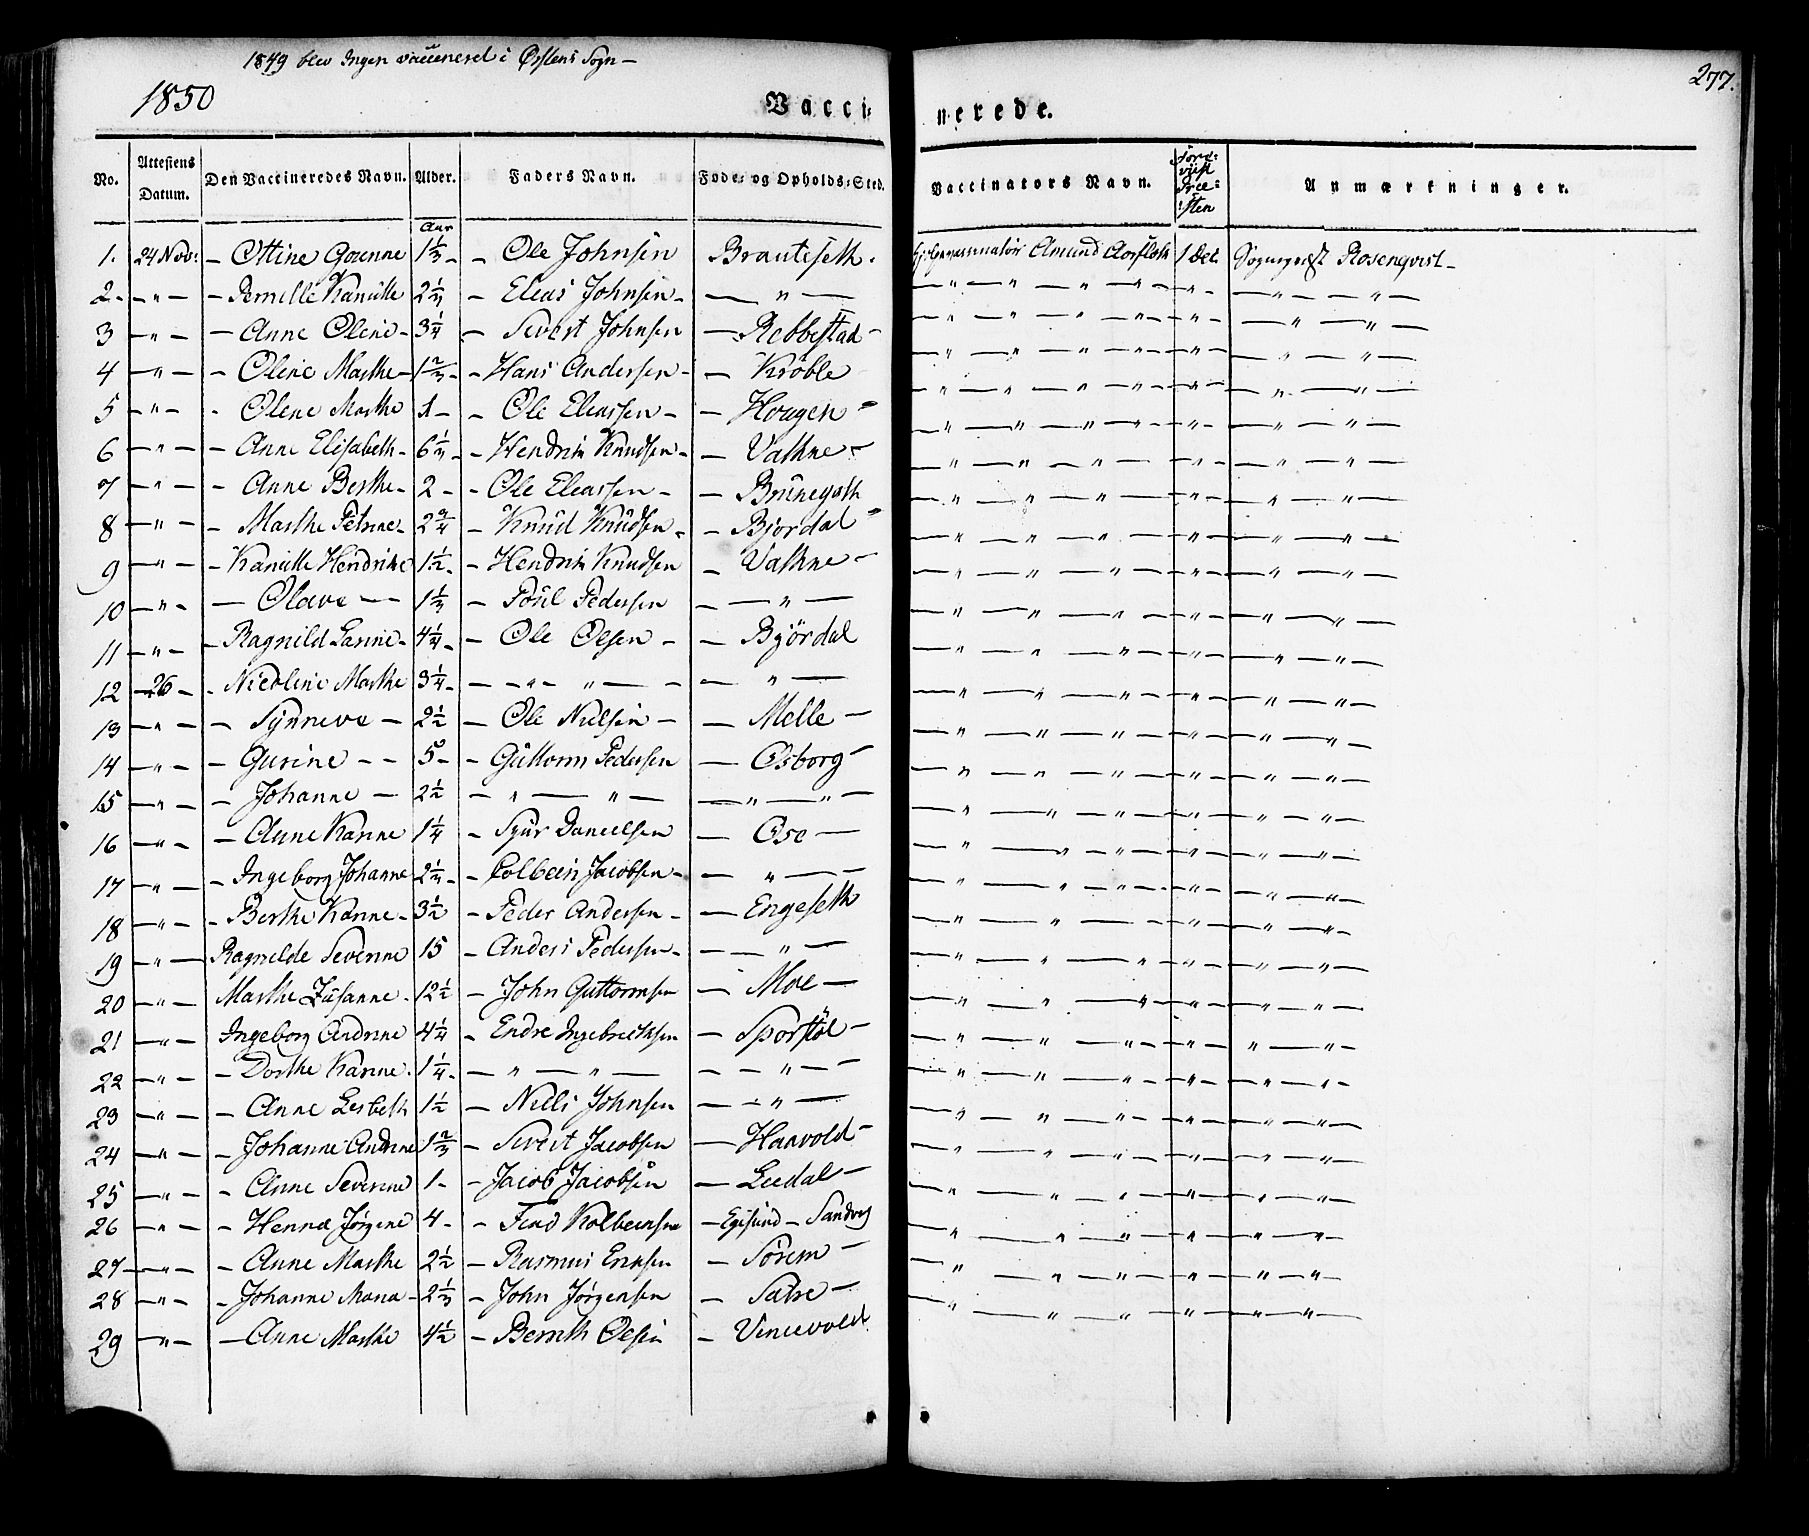 1849 blev Ingen vaccineret i Ørstens Sogn —
1850
277.
Vacci= nerede.
No. Attestens Datum. Den Vaccineredes Navn. Alder. Faders Navn. Føde= og Opholds=Sted. Vaccinators Navn. Anmærkninger.
Aar
1. 24 Nov: — Ottine Gurine 1 1/3 — Ole Johnsen Brauteseth. Amund Aarfloth 1 Det. Sogneprest Rosenqvist —
2 — " — Pernille Kanutte 2 1/3 — Elias Johnsen — " —
3 — " — Anne Oline — 3 1/4 — Sivert Johnsen — Rebbestad —
4 — " — Oline Marthe — 1 2/3 — Hans Andersen — Krøble
5 — " — Olene Marthe 1 — Ole Eliassen — Hougen —
6 — " — Anne Elisabeth — 6 1/2 — Hendrik Knudsen — Vathne —
7 — " — Anne Berthe — 2 — Ole Eliassen — Brunegoth
8 — " — Marthe Petrine — 2 3/4 — Knud Knudsen — Bjørdal —
9 — " — Kanutte Hendrikke 1 1/2 — Hendrik Knudsen — Vathne —
10 — " — Olave — 1 1/3 — Poul Pedersen — " —
11 — " — Ragnild Larine — 4 1/2 — Ole Olsen — Bjørdal
12 — 26 — Nicoline Marthe 3 1/4 — " " — " —
13 — " — Synneve — 2 1/2 — Ole Nielsen — Melle —
14 — " — Gurine — 5 — Guttorm Pedersen — Osborg —
15 — " — Johanne — 2 1/2 — " — " — " — " —
16 — " — Anne Karine 1 1/4 — Sjur Danielsen — Ose —
17 — " — Ingeborg Johanne 2 1/2 — Colbein Jacobsen — " —
18 — " — Berthe Karine — 3 1/2 — Peder Andersen — Engeseth
19 — " — Ragnilde Severine 15 — Anders Pedersen — " —
20 — " — Marthe Susanne. 12 1/2 — John Guttormsen — Moe —
21 — " — Ingeborg Andrine 4 1/4 — Endre Ingebrethsen — Sporstøl —
22 — " — Dorthe Karine. 1 1/4 — " — " — " —
23 — " — Anne Lisbeth 1 1/2 — Niels Johnsen — " —
24 — " — Johanne Andrine 1 2/3 — Sivert Jacobsen — Haavold —
25 — " — Anne Severine 1 — Jacob Jacobsen — Leedal —
26 — " — Jørgine 4 — Kolbeinsen — Egesund — Sandvig
27 — " — Anne Marthe 2 1/2 — Rasmus Eriksen — Sørem —
28 — " — Johanne Maria — 2 1/3 — John Jørgensen — Sætre —
29 — " — Anne Marthe 4 1/2 — Bernth Olsen — Vinievold